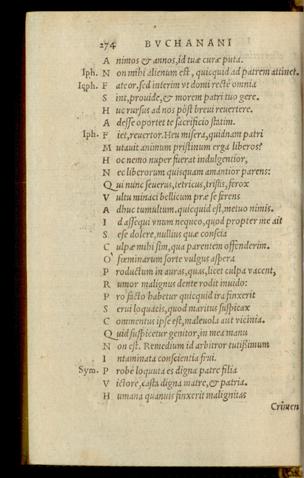 274 BVCHANANI
A nimos & annos, id tuæ curæ puta.
Iph. N on mihi alienum est, quicquid ad patrem attinet.
Ieph. F ateor. sed interim vt domi rectè omnia
S int, prouide, & morem patri tuo gere.
H uc rursus ad nos pòst breui reuertere.
A desse oportet te sacrificio statim.
Iph. F iet, reuertor. Heu misera, quidnam patri
M utauit animum pristinum erga liberos?
H oc nemo nuper fuerat indulgentior,
N ec liberorum quisquam amantior parens:
Q ui nunc seuerus, tetricus, tristis, ferox
V ultu minaci bellicum præ se ferens
A dhuc tumultum. quicquid est, metuo nimis.
I d assequi vnum nequeo, quod propter me ait
S ese dolere, nullius quæ conscia
C ulpæ mihi sim, qua parentem offenderim.
O fœminarum sorte vulgus aspera
P roductum in auras, quas, licet culpa vacent,
R umor malignus dente rodit inuido:
P ro facto habetur quicquid ira finxerit
S erui loquacis, quod maritus suspicax
C ommentus ipse est, maleuola aut vicinia.
Q uid suspicetur genitor, in mea manu
N on est. Remedium id arbitror tutissimum
I ntaminata conscientia frui.
Sym. P robè loquuta es digna patre filia
V ictore, casta digna matre, & patria.
H umana quanuis finxerit malignitas
Crimen